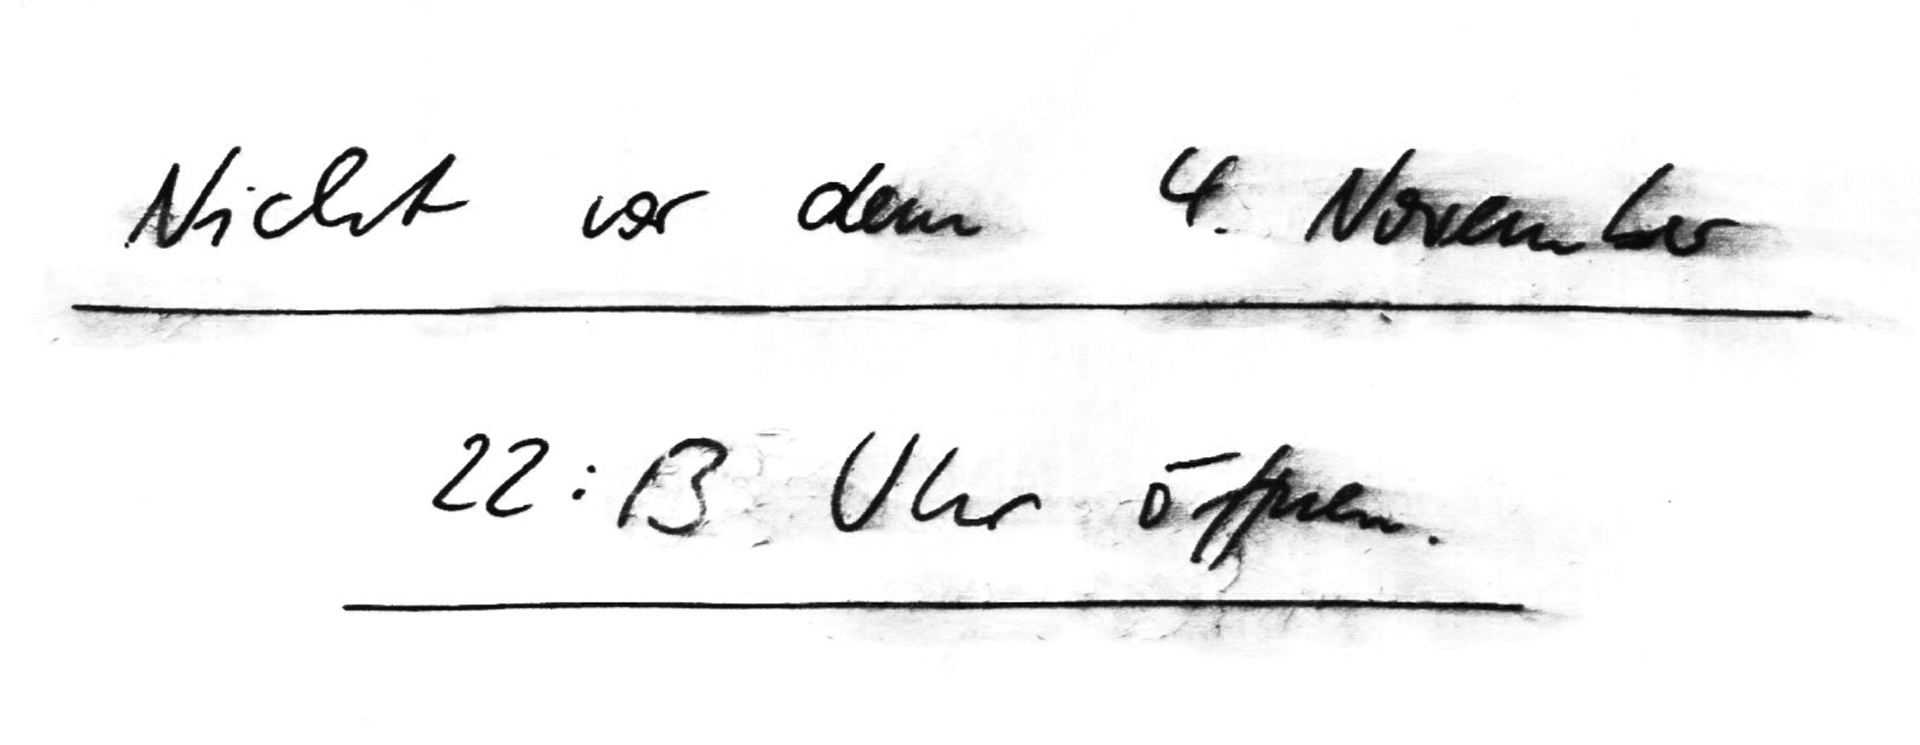 Nicht vor dem 4. November
22:13 Uhr öffnen.